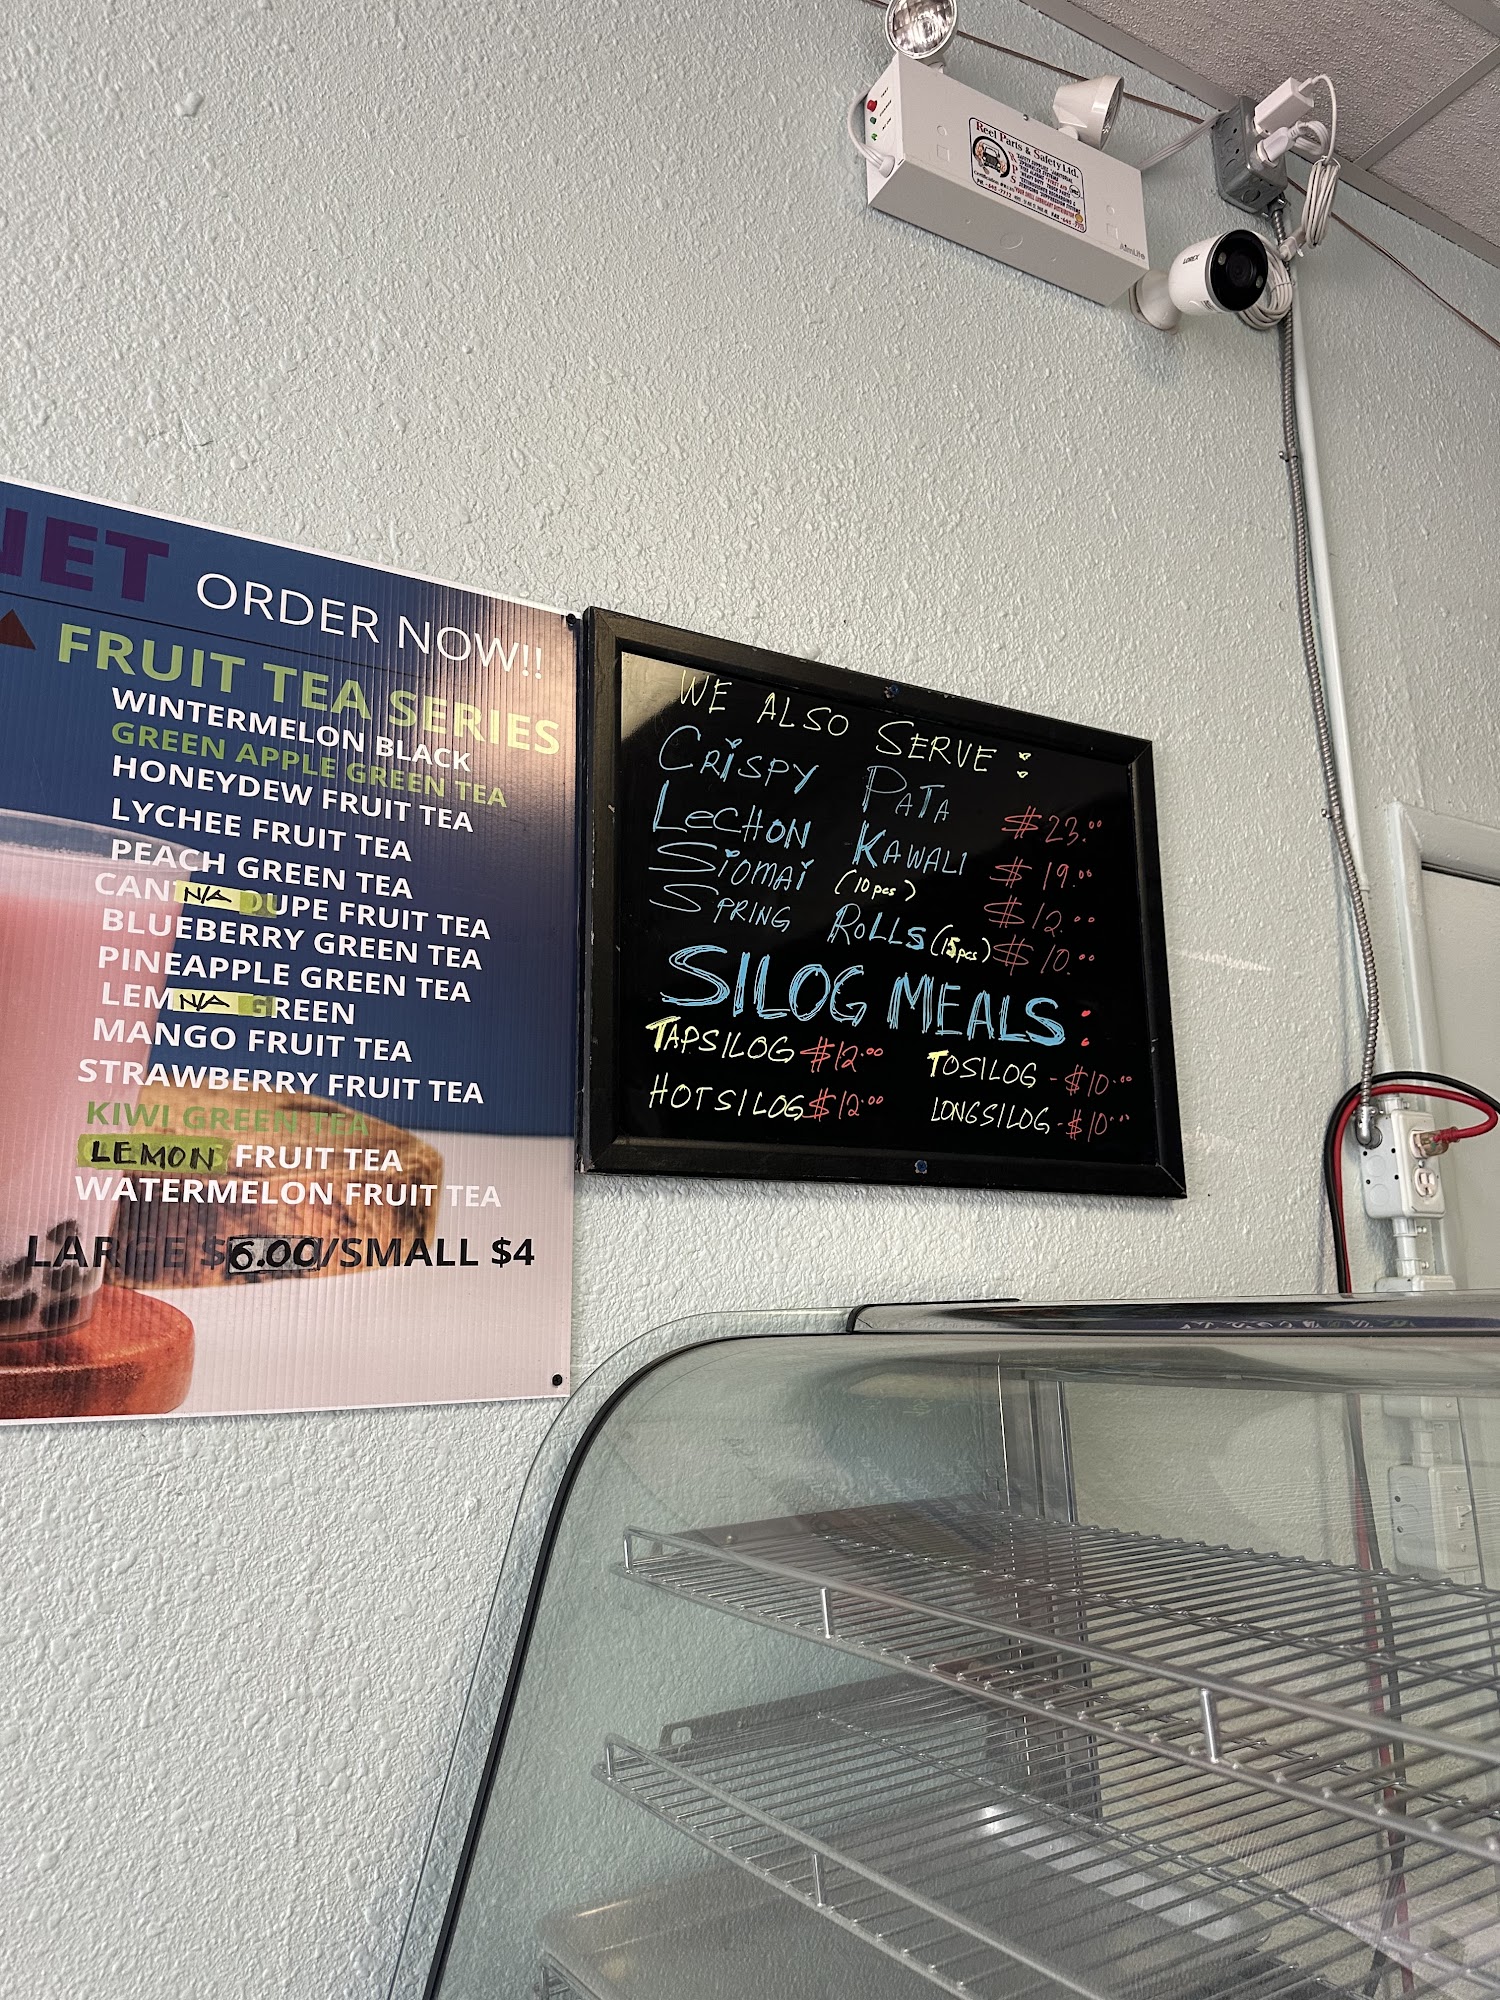 Reel Parts & Safety Ltd.
AimLite
LOREX
NET ORDER NOW!!
FRUIT TEA SERIES
WINTERMELON BLACK
GREEN APPLE GREEN TEA
HONEYDEW FRUIT TEA
LYCHEE FRUIT TEA
PEACH GREEN TEA
CAN N/A OUPE FRUIT TEA
BLUEBERRY GREEN TEA
PINEAPPLE GREEN TEA
LEM N/A GREEN
MANGO FRUIT TEA
STRAWBERRY FRUIT TEA
KIWI GREEN TEA
LEMON FRUIT TEA
WATERMELON FRUIT TEA
LARGE $6.00/SMALL $4
WE ALSO SERVE:
CRISPY PATA $23.00
LECHON KAWALI $19.00
SIOMAI (10pcs) $12.00
SPRING ROLLS (15pcs) $10.00
SILOG MEALS:
TAPSILOG $12.00 TOSILOG - $10.00
HOTSILOG $12.00 LONGSILOG - $10.00